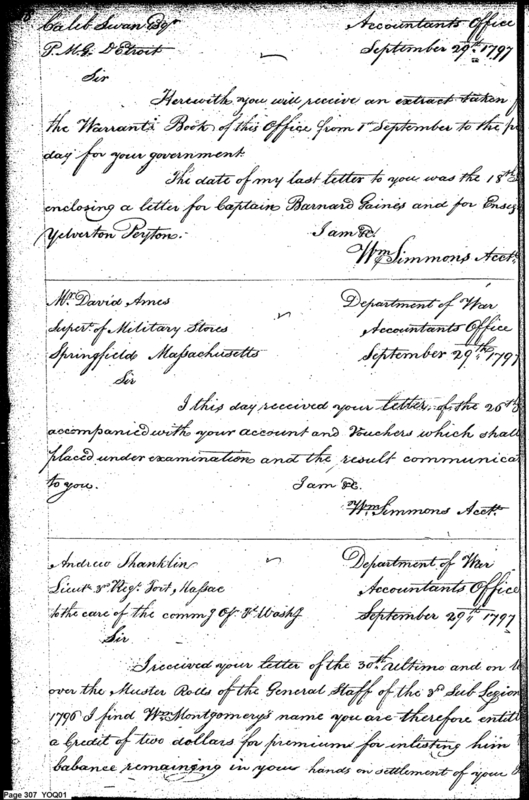 Caleb Swan Esqr. Accountants Office
P.M.G. Detroit September 29th. 1797
Sir
Herewith you will receive an extract taken
the Warrant Book of this Office from 1st September to the
day for your government.
The date of my last letter to you was the 18th
enclosing a letter for Captain Barnard Gaines and for
Yelverton Peyton. I am &c.
Wm Simmons Acct.
Mr. David Ames Department of War
Supert. of Military Stores Accountants Office
Springfield Massachusetts September 29th. 1797
Sir
I this day received your letter of the 26th
accompanied with your account and Vouchers which shall
placed under examination and the result communica
to you. I am &c.
Wm Simmons Acct.
Andrew Shanklin Department of War
Lieut. 3d Regt. Fort Massac Accountants Office
to the care of the commg Of. Ft. Washg September 29th. 1797
Sir
I received your letter of the 30th. ultimo and on
over the Muster Rolls of the General Staff of the 3d Sub Legion
1796 I find Wm Montgomery's name you are therefore entitl
a Credit of two dollars for premium for enlisting him
balance remaining in your hands on settlement of your
Page 307 YOQ01